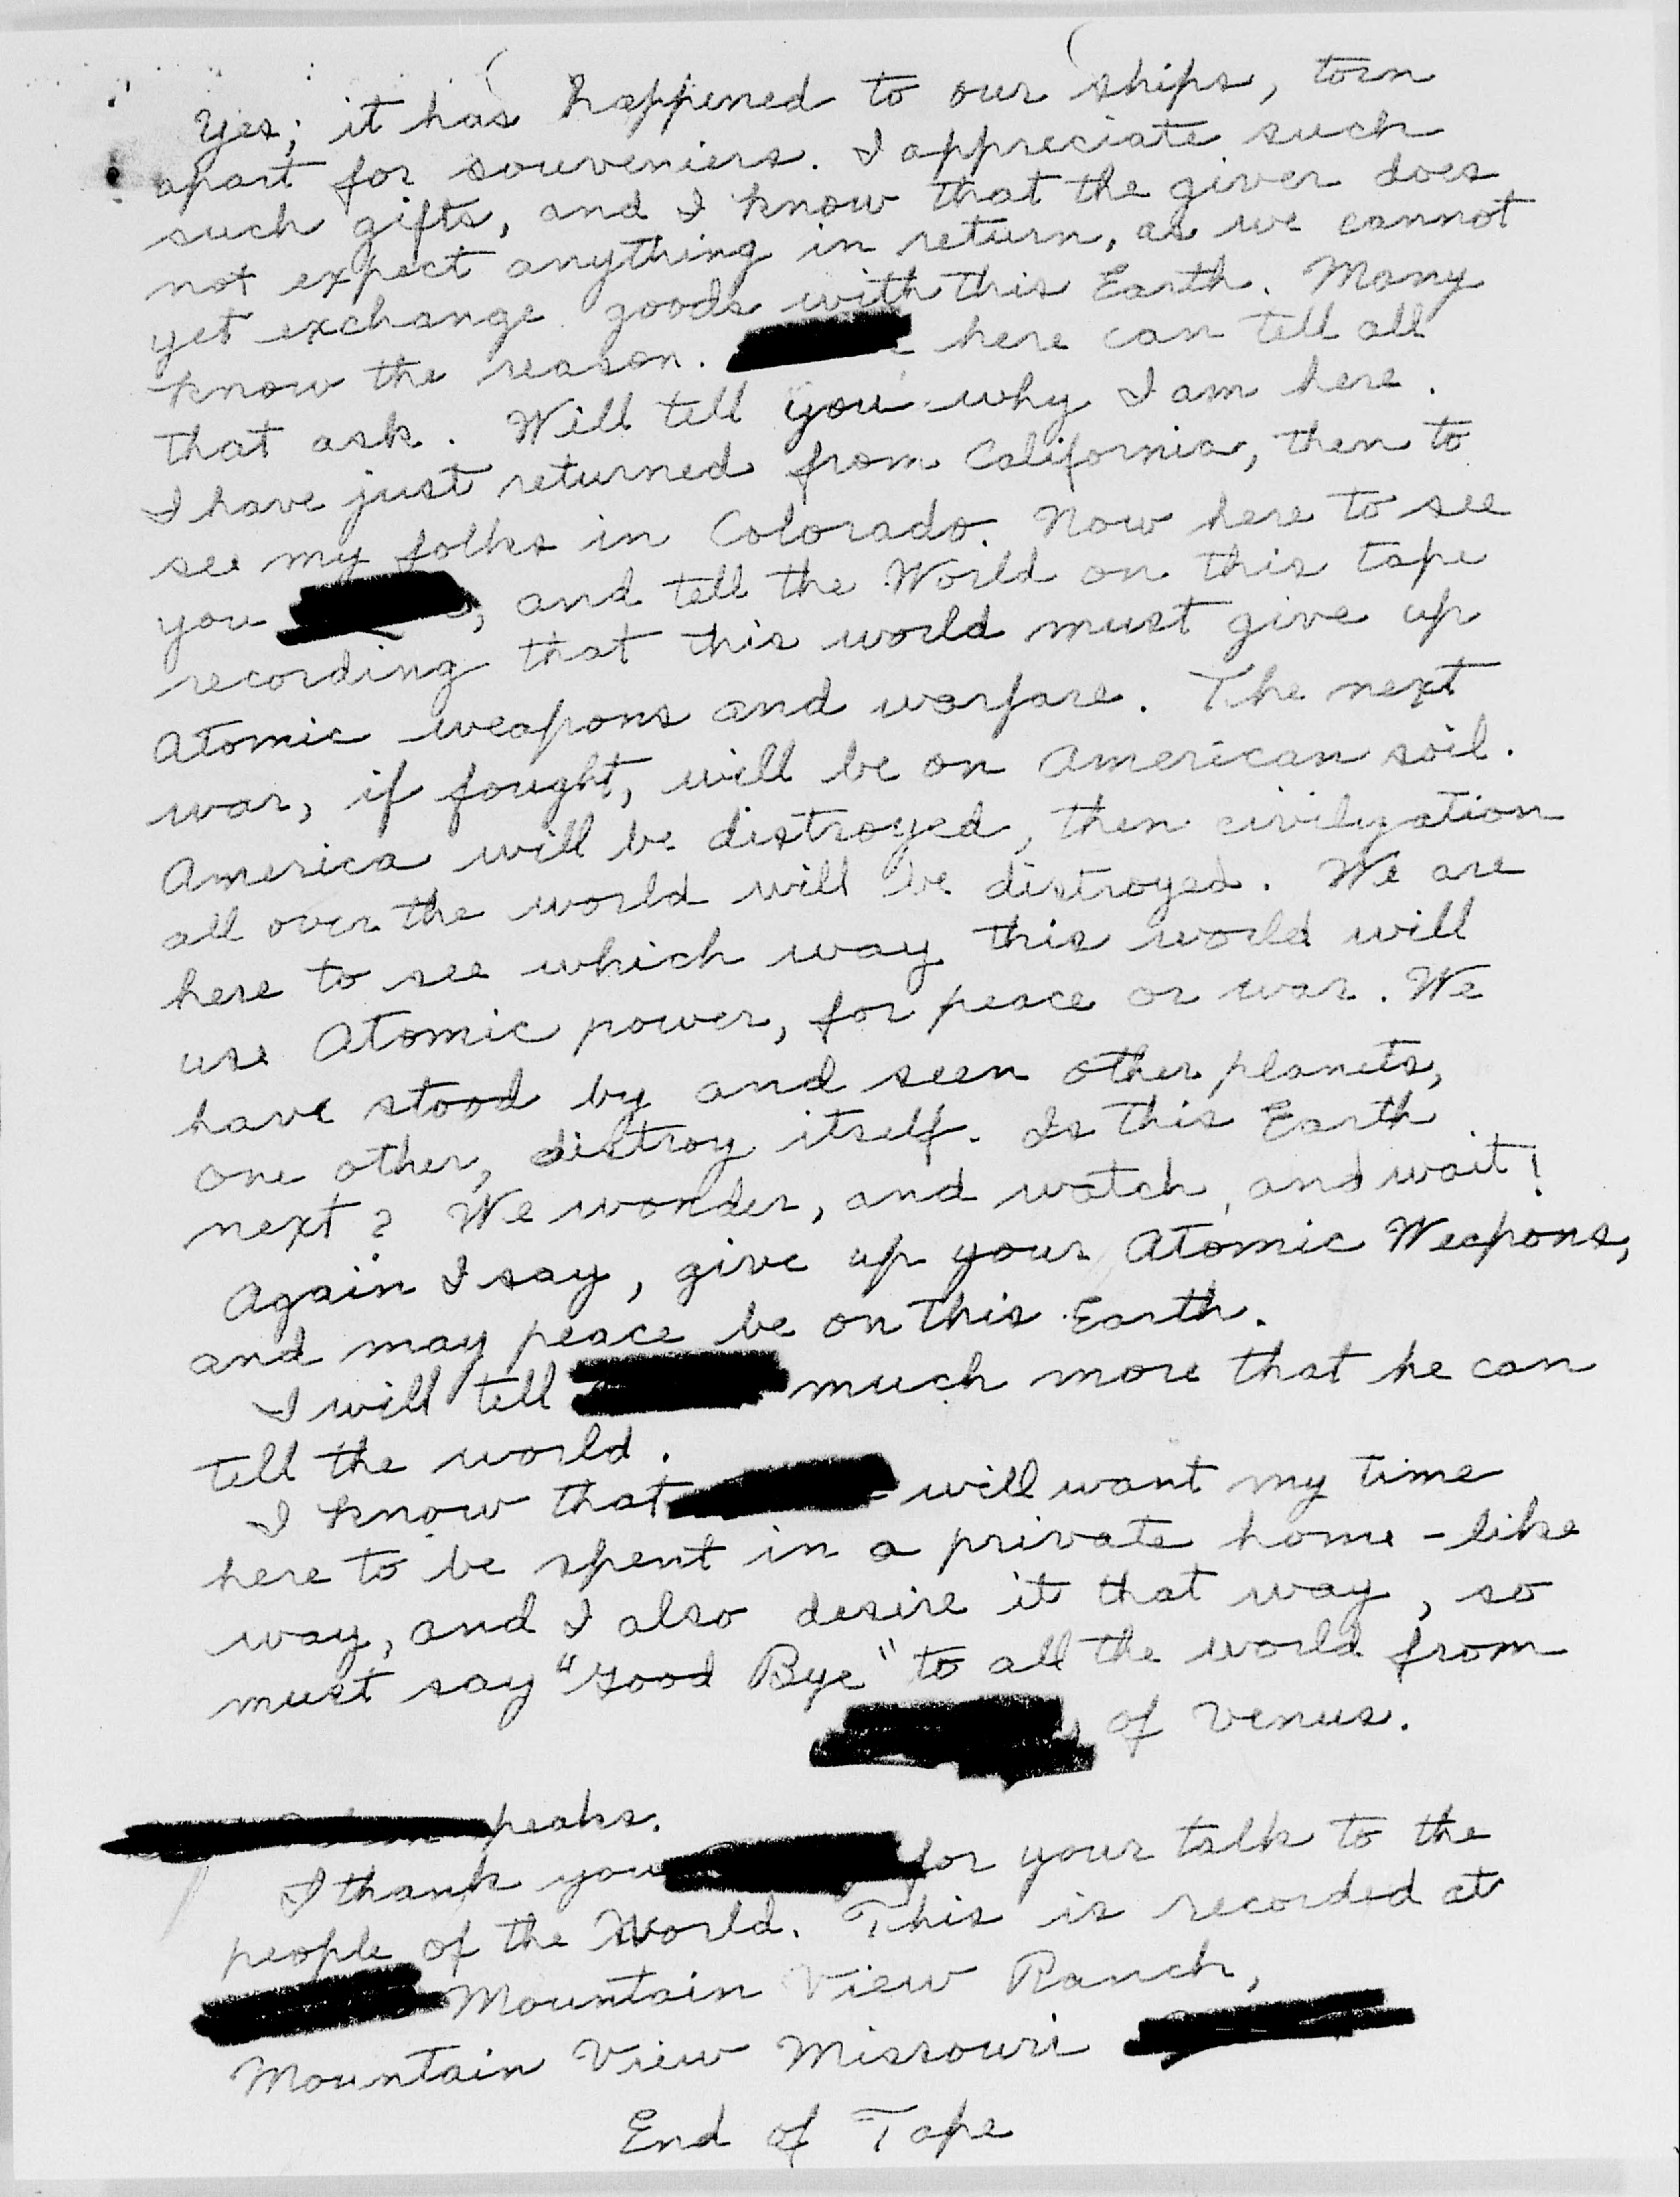 Yes; it has happened to our ships, torn
apart for souveniers. I appreciate such
such gifts, and I know that the giver does
not expect anything in return, as we cannot
yet exchange goods with this Earth. Many
know the reason. here can tell all
that ask. Will tell you why I am here.
I have just returned from California, then to
see my folks in Colorado. Now here to see
you , and tell the World on this tape
recording that this world must give up
Atomic weapons and warfare. The next
war, if fought, will be on American soil.
America will be distroyed, then civilyation
all over the world will be distroyed. We are
here to see which way this world will
use Atomic power, for peace or war. We
have stood by and seen other planets,
one other, distroy itself. Is this Earth
next? We wonder, and watch, and wait!
Again I say, give up your Atomic Weapons,
and may peace be on this Earth.
I will tell much more that he can
tell the world.
I know that will want my time
here to be spent in a private home-like
way, and I also desire it that way, so
must say "Good Bye" to all the world from
of Venus.
peaks.
I thank you for your talk to the
people of the World. This is recorded at
Mountain View Ranch,
Mountain View Missouri
End of Tape